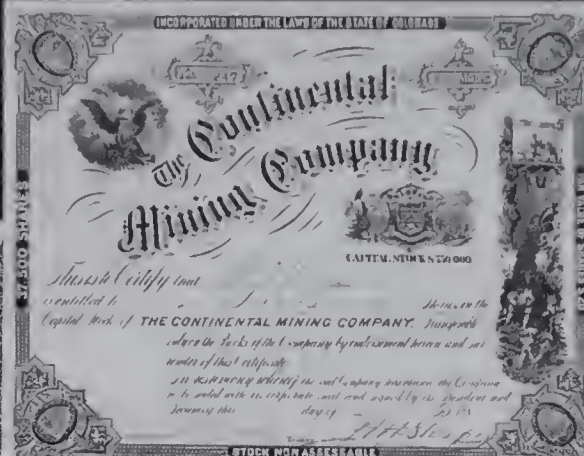 INCORPORATED UNDER THE LAWS OF THE STATE OF COLORADO
247
The Continental
Mining Company
37,500 SHARES
CAPITAL STOCK $750 000
This is to Certify that
is entitled to Shares in the
Capital Stock of THE CONTINENTAL MINING COMPANY. Transferable
only on the Books of the Company by endorsement hereon and sur
render of this Certificate
In testimony whereof the said Company has caused this Certificate
to be sealed with its corporate seal and signed by its President and
Secretary this day of
STOCK NON ASSESSABLE